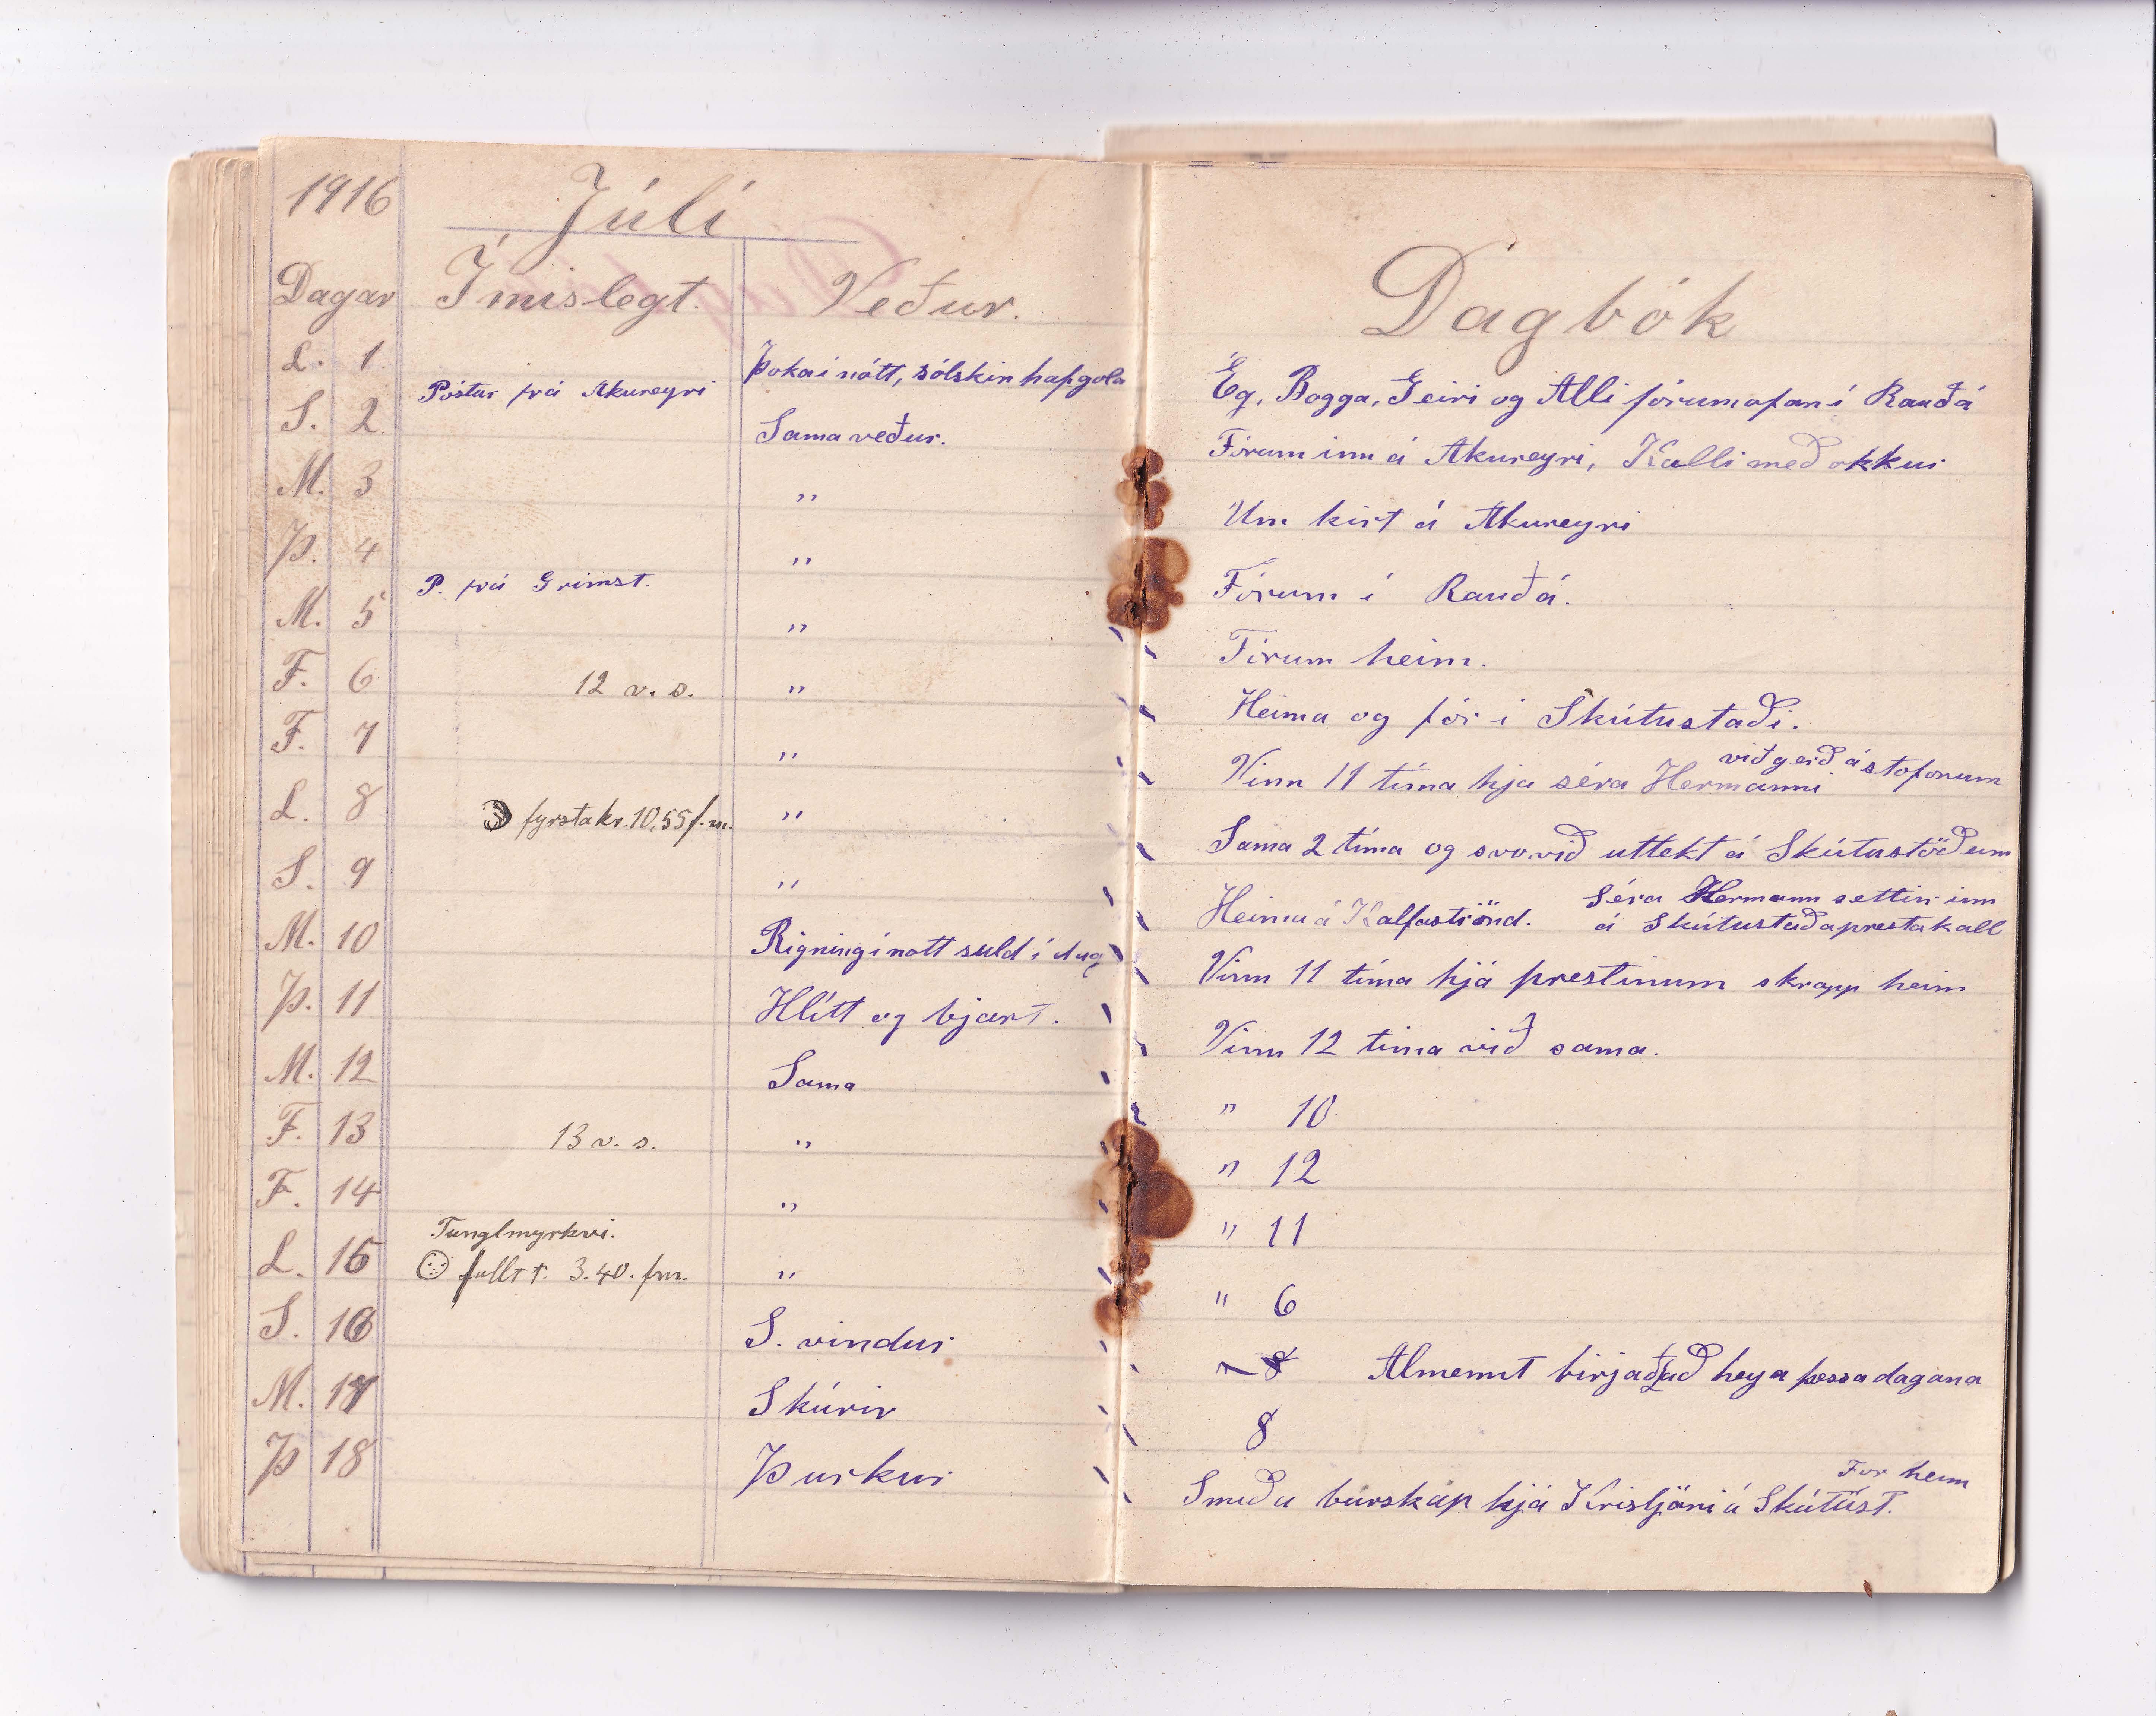 1916
Júlí
Dagar Ímislegt. Veður.
L. 1 Póstur frá Akureyri Þoka í nótt, sólskin hafgola
S. 2 Sama veður.
M. 3 "
Þ. 4 "
M. 5 P. frá Grimst. "
F. 6 12 v. s. "
F. 7 "
L. 8 fyrsta kv. 10,55 f.m. "
S. 9 "
M. 10 Rigning í nott suld í dag
Þ. 11 Hlítt og bjart.
M. 12 Sama
F. 13 13 v. s. "
F. 14 "
Tunglmyrkvi.
L. 15 fullt t. 3.40. fm. "
S. 16 S. vindur
M. 17 Skúrir
Þ 18 Þurkur
Dagbók
Ég, Bogga, Geiri og Alli fórum ofan í Rauðá
Fórum inn á Akureyri, Kalli með okkur
Um kirt á Akureyri
Fórum í Rauðá.
Fórum heim.
Heima og fór í Skútustaði.
Vinn 11 tíma hja séra Hermanni viðgerð á stofonum
Sama 2 tíma og svo við uttekt á Skútustöðum
Heima á Kalfaströnd. Séra Hermann settur inn
á Skútustaðaprestakall
Vinn 11 tíma hjá prestinum skrapp heim
Vinn 12 tíma við sama.
" 10
" 12
" 11
" 6
Almennt birjað að heya þessa dagana
8
For heim
Smíða burskáp hjá Kristjáni á Skútust.